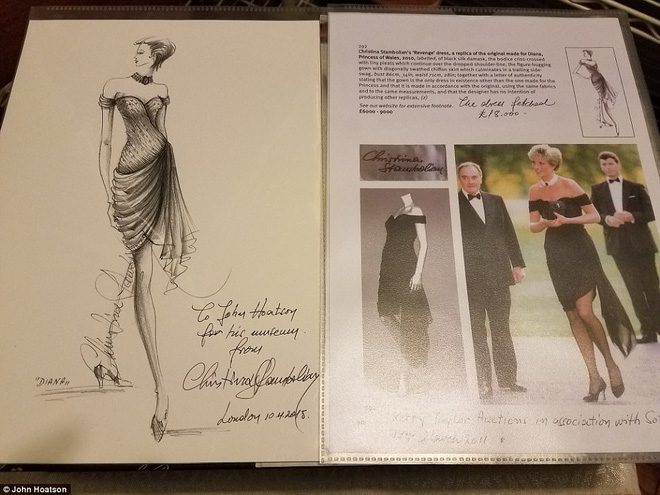 "DIANA"
To John Hoatson
for his museum.
from
Christina Stambolian
London 10.4.2015.
Christina Stambolian's 'Revenge' dress, a replica of the original made for Diana,
Princess of Wales, 2010, labelled, of black silk damask, the bodice criss-crossed
with tiny pleats which continue over the dropped shoulder line, the figure hugging
gown with diagonally swathed chiffon skirt which culminates in a trailing side
swag, bust 86cm, 34in, waist 71cm, 28in; together with a letter of authenticity
stating that the gown is the only dress in existence other than the one made for the
Princess and that it is made in accordance with the original, using the same fabrics
and to the same measurements, and that the designer has no intention of
producing other replicas. (2)
See our website for extensive footnote.
£6000 - 9000
The dress fetched
£18.000.-
Christina
Stambolian
Kerry Taylor Auctions in association with So
© John Hoatson